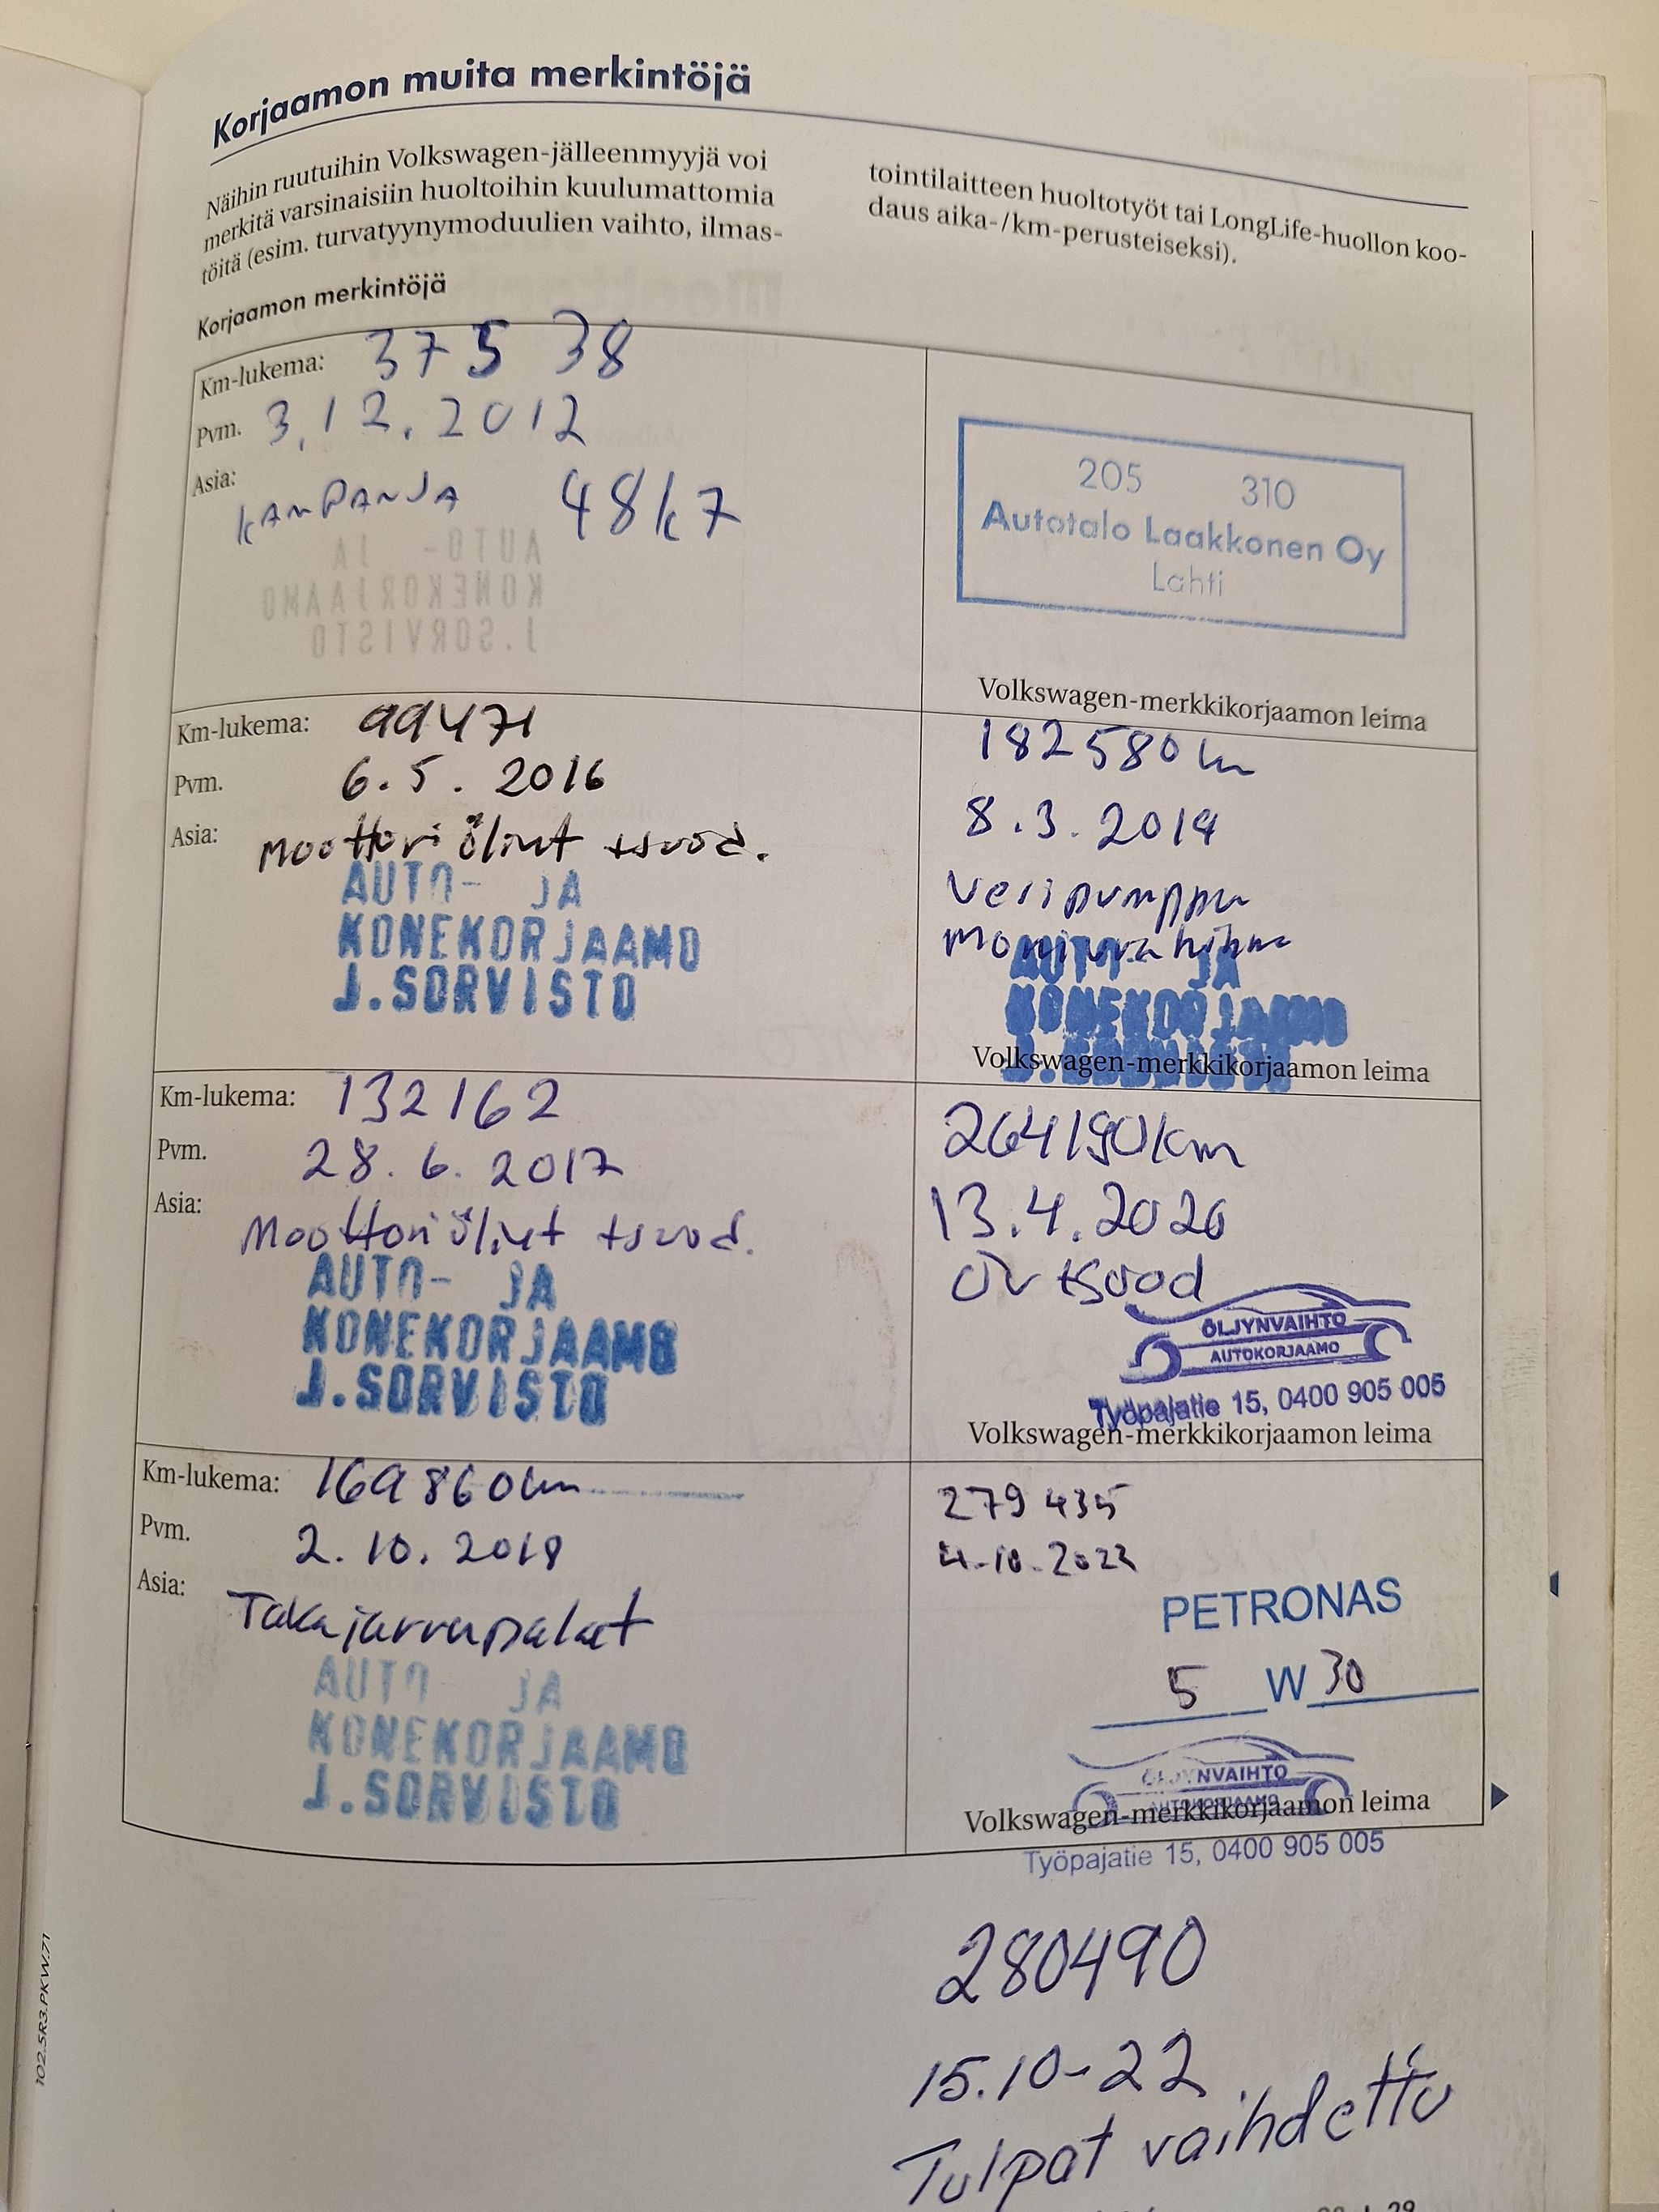 Korjaamon muita merkintöjä
Näihin ruutuihin Volkswagen-jälleenmyyjä voi
merkitä varsinaisiin huoltoihin kuulumattomia
töitä (esim. turvatyynymoduulien vaihto, ilmas-
tointilaitteen huoltotyöt tai LongLife-huollon koo-
daus aika-/km-perusteiseksi).
Korjaamon merkintöjä
Km-lukema: 375 38
Pvm. 3.12.2012
Asia: KAMPANJA 48k7
AUTO- JA
KONEKORJAAMO
J.SORVISTO
205 310
Autotalo Laakkonen Oy
Lahti
Volkswagen-merkkikorjaamon leima
Km-lukema: 99471
Pvm. 6.5. 2016
Asia: Moottoriöljyt +suod.
AUTO- JA
KONEKORJAAMO
J.SORVISTO
182580 km
8.3.2019
Vesipumppu
Moniurahihna
AUTO- JA
KONEKORJAAMO
J.SORVISTO
Volkswagen-merkkikorjaamon leima
Km-lukema: 132162
Pvm. 28.6.2017
Asia: Moottoriöljyt +suod.
AUTO- JA
KONEKORJAAMO
J.SORVISTO
264190km
13.4.2020
+Suod
ÖLJYNVAIHTO
AUTOKORJAAMO
Työpajatie 15, 0400 905 005
Volkswagen-merkkikorjaamon leima
Km-lukema: 169860km
Pvm. 2.10.2018
Asia: Takajarrupalat
AUTO JA
KONEKORJAAMO
J.SORVISTO
279 435
4.10.2022
PETRONAS
5 W 30
ÖLJYNVAIHTO
AUTOKORJAAMO
Volkswagen-merkkikorjaamon leima
Työpajatie 15, 0400 905 005
280490
15.10-22
Tulpat vaihdettu
102.5R3.PKW.71